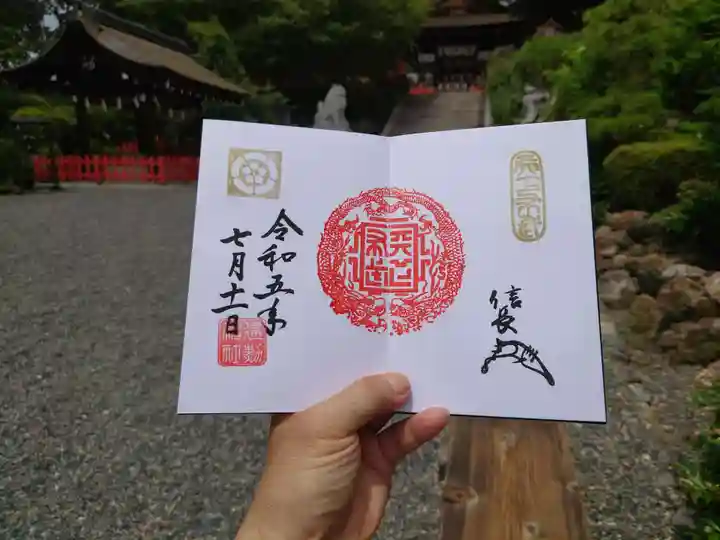 信長
天下布武
令和五年
七月十一日
建勲神社